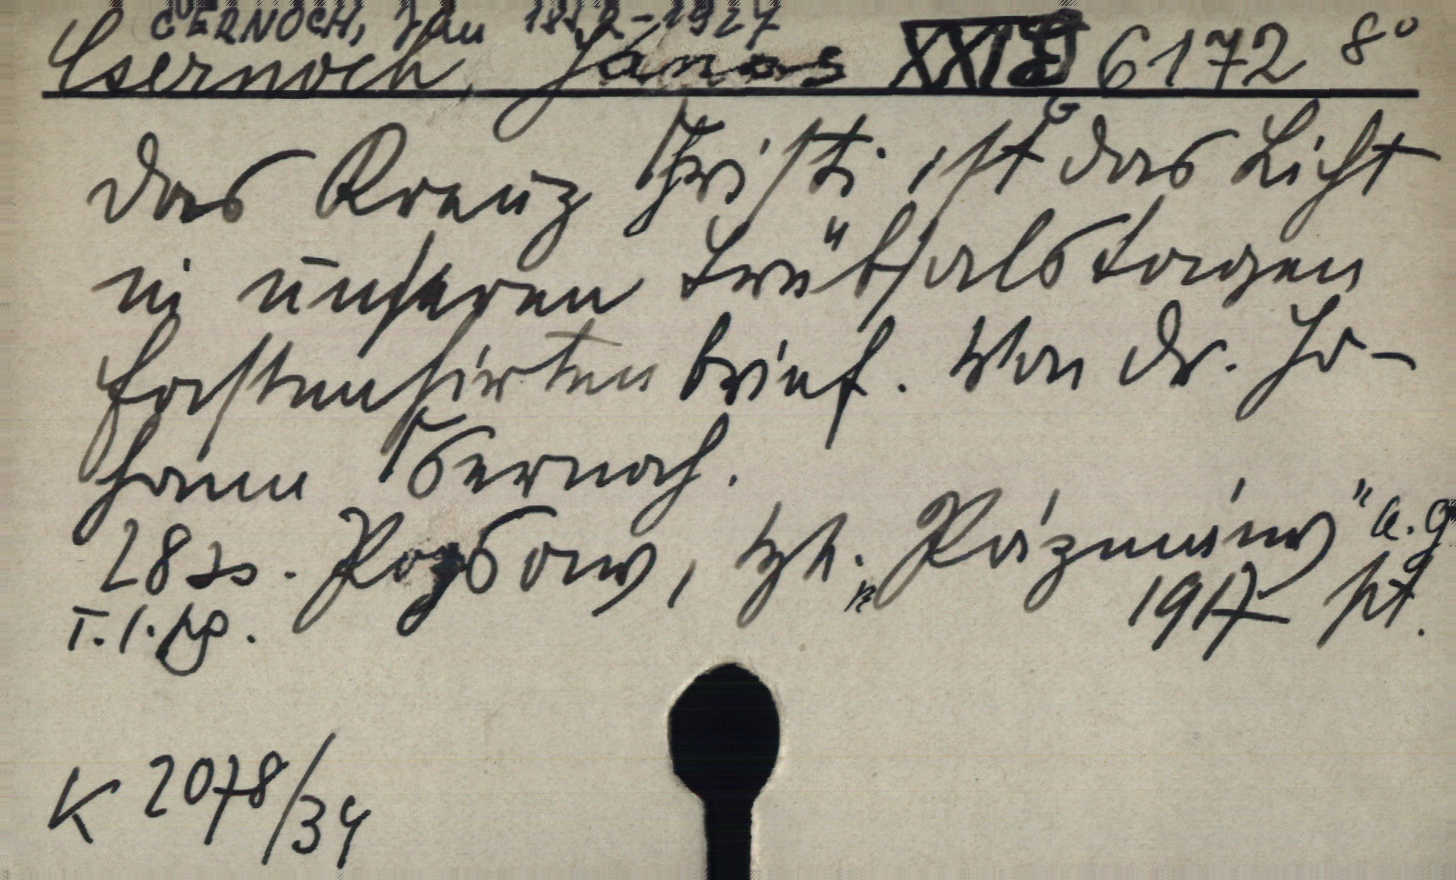 ČERNOCH, Ján 1852-1927
Csernoch, János XXI G 6172 8°
G
Das Kreuz Christi ist das Licht
in unseren Trübsalstagen
Fastenhirtenbrief. Von Dr. Jo-
hann Csernoch.
28 s. Pozsony, tyt. "Pázmány" u. g.
T. l. pg. 1917 pt.
K 2078/34